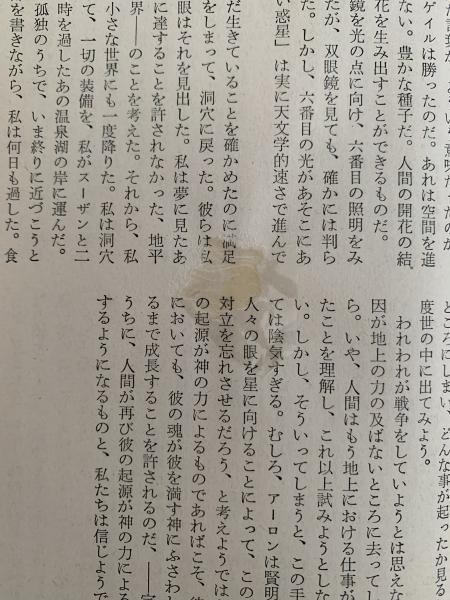 ゲイルは勝ったのだ。あれは空間を進
ない。豊かな種子だ。人間の開花の結
花を生み出すことができるものだ。
鏡を光の点に向け、六番目の照明をみ
たが、双眼鏡を見ても、確かには判ら
た。しかし、六番目の光があそこにあ
い惑星」は実に天文学的速さで進んで
だ生きていることを確かめたのに満足
をしまって、洞穴に戻った。彼らは私
眼はそれを見出した。私は夢に見たあ
に達することを許されなかった、地平
界――のことを考えた。それから、私
小さな世界にも一度降りた。私は洞穴
て、一切の装備を、私がスーザンと二
時を過したあの温泉湖の岸に運んだ。
孤独のうちで、いま終りに近づこうと
を書きながら、私は何日も過した。食
ところにしまい、どんな事が起ったか見る
度世の中に出てみよう。
われわれが戦争をしていようとは思えな
因が地上の力の及ばないところに去ってし
ら。いや、人間はもう地上における仕事が
たことを理解し、これ以上試みようとしな
い。しかし、そういってしまうと、この手
ては陰気すぎる。むしろ、アーロンは賢明
人々の眼を星に向けることによって、この
対立を忘れさせるだろう、と考えようでは
の起源が神の力によるものであればこそ、
においても、彼の魂が彼を満す神にふさわ
るまで成長することを許されるのだ、――
うちに、人間が再び彼の起源が神の力による
するようになるものと、私たちは信じようで